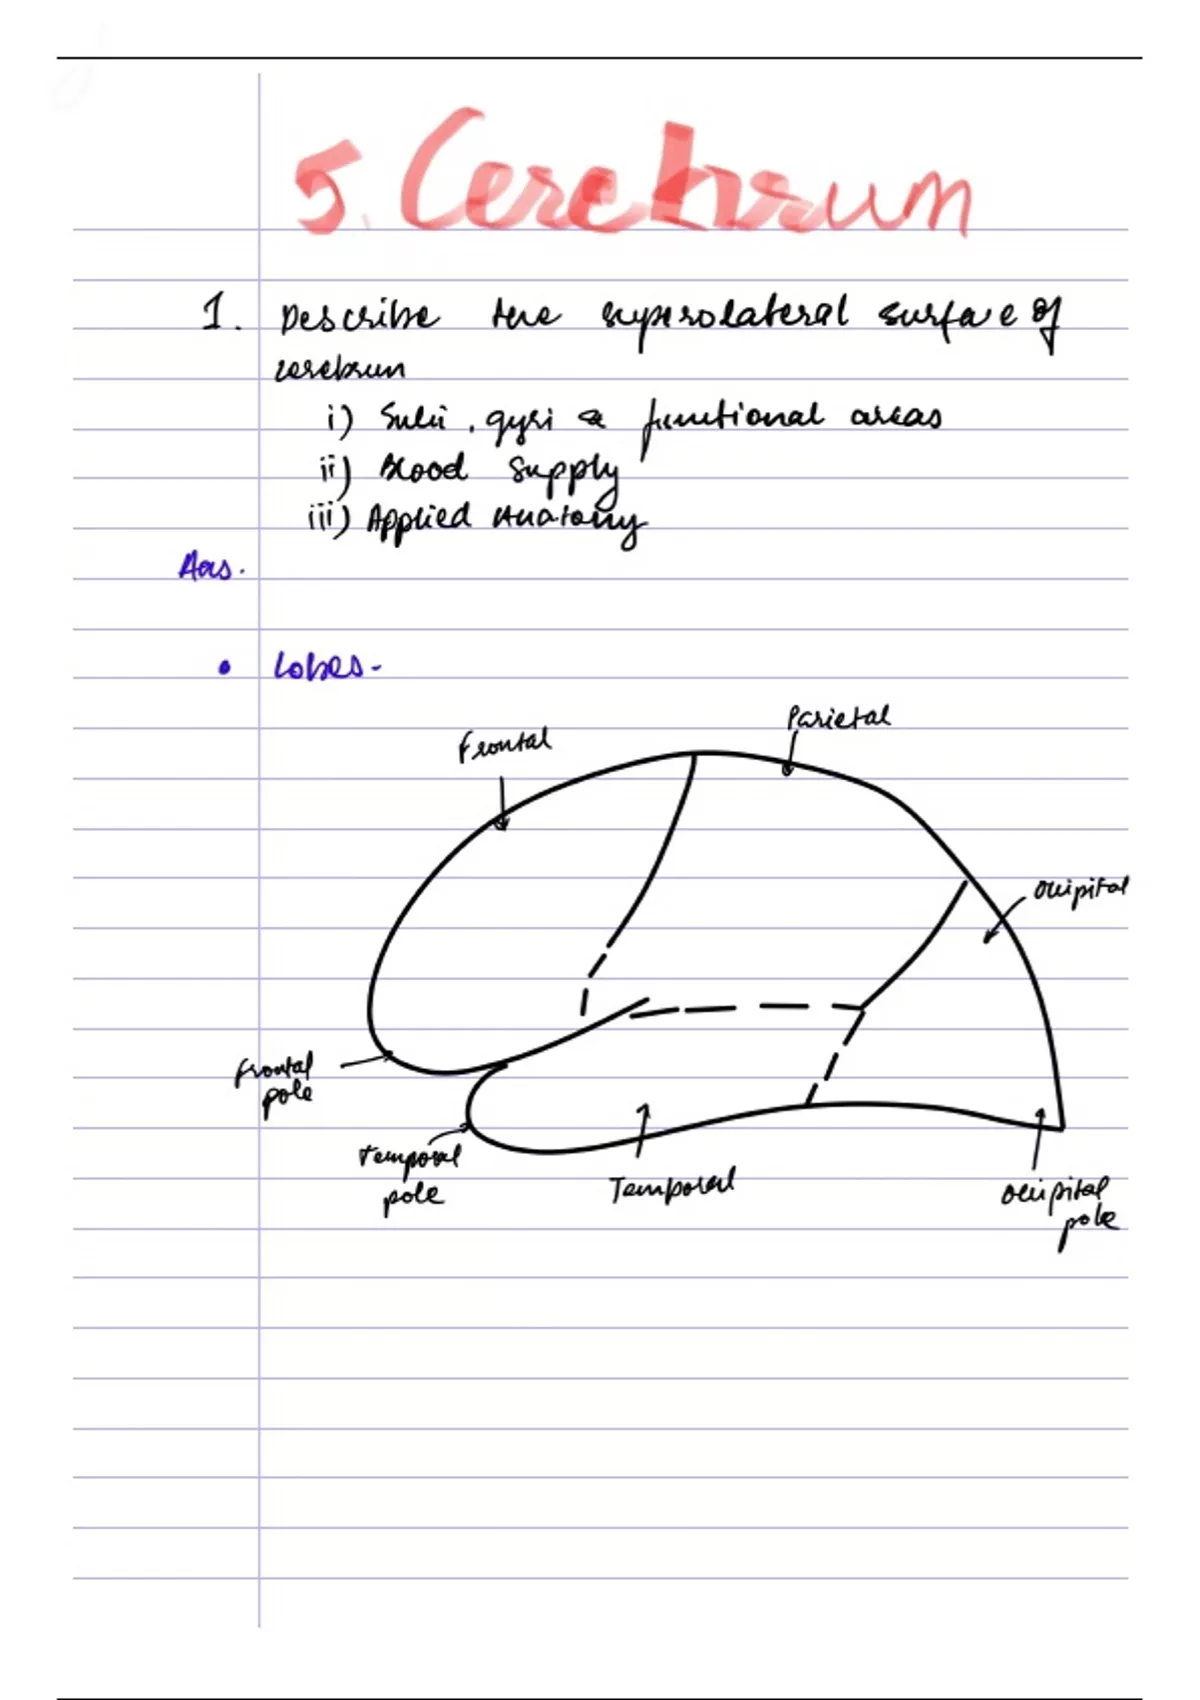 5. Cerebrum
1. Describe the superolateral surface of
cerebrum
i) Sulci, gyri & functional areas
ii) Blood supply
iii) Applied Anatomy
Ans.
• Lobes-
Parietal
Frontal
Occipital
Frontal
pole
Temporal
pole
Temporal
Occipital
pole